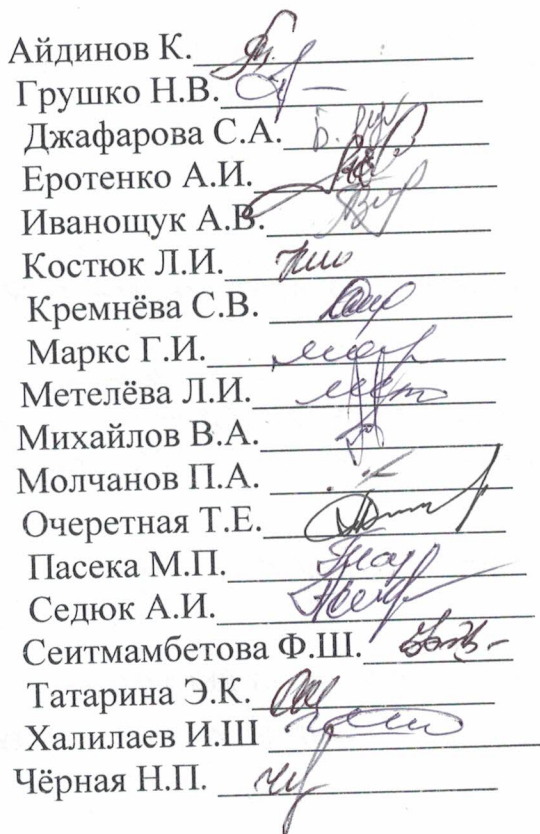 Айдинов К.
Грушко Н.В.
Джафарова С.А.
Еротенко А.И.
Иванощук А.В.
Костюк Л.И.
Кремнёва С.В.
Маркс Г.И.
Метелёва Л.И.
Михайлов В.А.
Молчанов П.А.
Очеретная Т.Е.
Пасека М.П.
Седюк А.И.
Сеитмамбетова Ф.Ш.
Татарина Э.К.
Халилаев И.Ш
Чёрная Н.П.